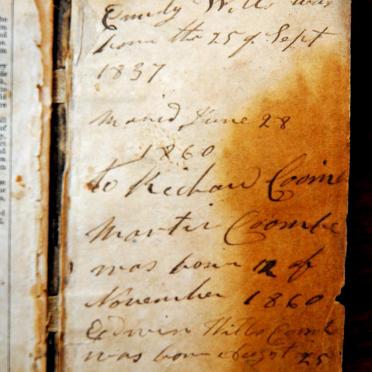 Emily Wills was
born the 25 of Sept
1837
marid June 28
1860
to Richard Coombe
Martin Coombe
was born 12 of
November 1860
Edwin Wills Coombe
was born August 25